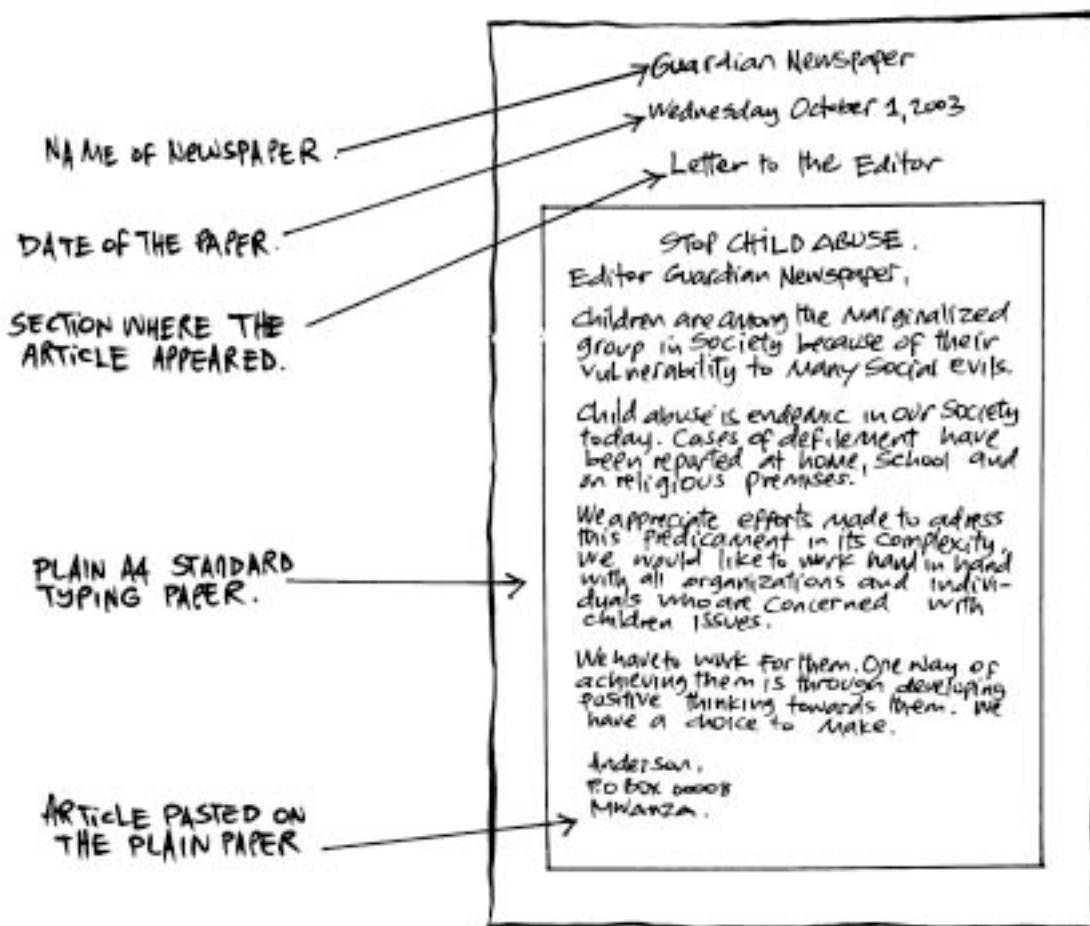 Guardian Newspaper
Wednesday October 1, 2003
Letter to the Editor
NAME OF NEWSPAPER.
DATE OF THE PAPER.
SECTION WHERE THE
ARTICLE APPEARED.
PLAIN A4 STANDARD
TYPING PAPER.
ARTICLE PASTED ON
THE PLAIN PAPER
STOP CHILD ABUSE.
Editor Guardian Newspaper,
Children are among the marginalized
group in society because of their
vulnerability to many social evils.
Child abuse is endemic in our society
today. Cases of defilement have
been reported at home, school and
on religious premises.
We appreciate efforts made to adress
this predicament in its complexity.
We would like to work hand in hand
with all organizations and indivi-
duals who are concerned with
children issues.
We have to work for them. One way of
achieving them is through developing
positive thinking towards them. We
have a choice to make.
Anderson,
P.O BOX 00008
MWANZA.